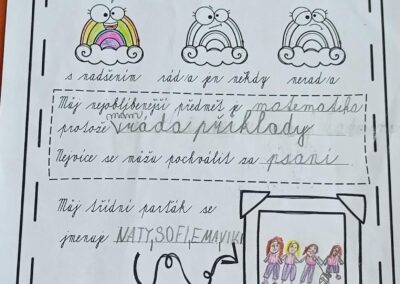 s nadšením rád/a jen někdy nerad/a
Můj nejoblíbenější předmět je matematika
protože mám ráda příklady
Nejvíce se můžu pochválit za psaní.
Můj třídní parťák se
jmenuje NATY,SOFI,EMAVIKI